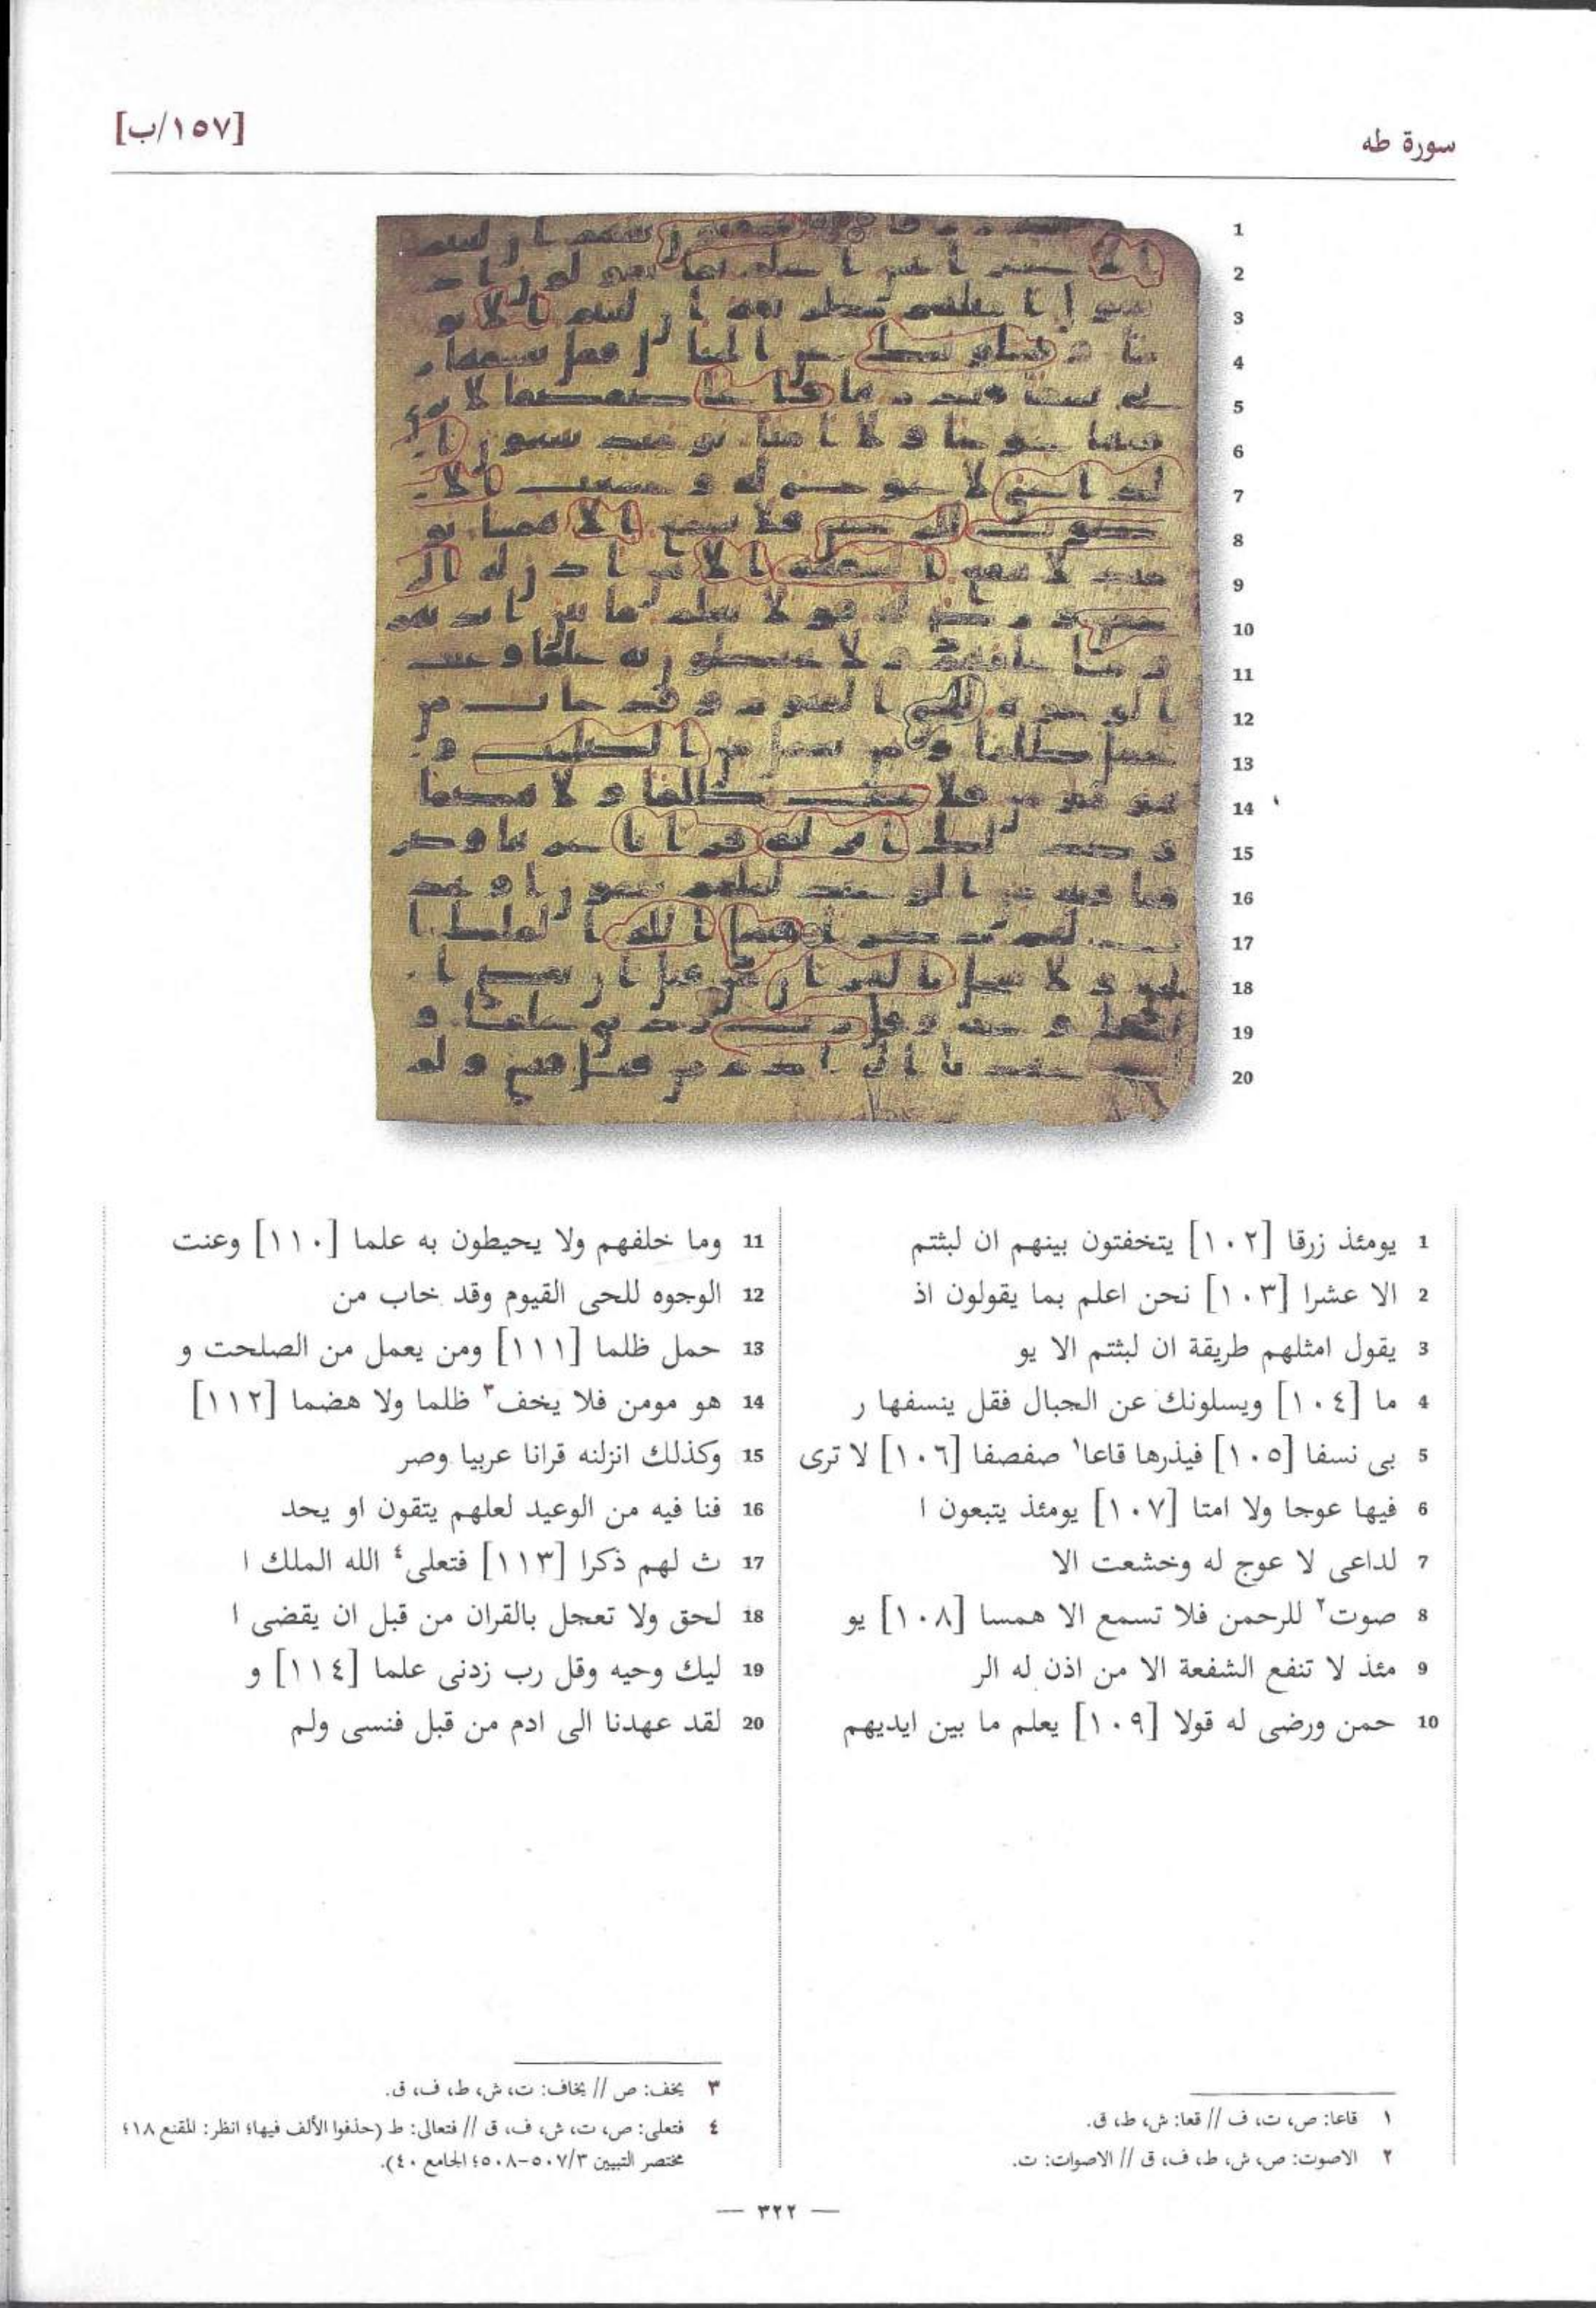 سورة طه
[١٥٧/ب]
1 يومئذ زرقا [١٠٢] يتخفتون بينهم ان لبثتم
2 الا عشرا [١٠٣] نحن اعلم بما يقولون اذ
3 يقول امثلهم طريقة ان لبثتم الا يو
4 ما [١٠٤] ويسلونك عن الجبال فقل ينسفها ر
5 بى نسفا [١٠٥] فيذرها قاعا١ صفصفا [١٠٦] لا ترى
6 فيها عوجا ولا امتا [١٠٧] يومئذ يتبعون ا
7 لداعى لا عوج له وخشعت الا
8 صوت٢ للرحمن فلا تسمع الا همسا [١٠٨] يو
9 مئذ لا تنفع الشفعة الا من اذن له الر
10 حمن ورضى له قولا [١٠٩] يعلم ما بين ايديهم
11 وما خلفهم ولا يحيطون به علما [١١٠] وعنت
12 الوجوه للحى القيوم وقد خاب من
13 حمل ظلما [١١١] ومن يعمل من الصلحت و
14 هو مومن فلا يخف٣ ظلما ولا هضما [١١٢]
15 وكذلك انزلنه قرانا عربيا وصر
16 فنا فيه من الوعيد لعلهم يتقون او يحد
17 ث لهم ذكرا [١١٣] فتعلى٤ الله الملك ا
18 لحق ولا تعجل بالقران من قبل ان يقضى ا
19 ليك وحيه وقل رب زدنى علما [١١٤] و
20 لقد عهدنا الى ادم من قبل فنسى ولم
١ قاعا: ص، ت، ف // قعا: ش، ط، ق.
٢ الاصوت: ص، ش، ط، ف، ق // الاصوات: ت.
٣ يخف: ص // يخاف: ت، ش، ط، ف، ق.
٤ فتعلى: ص، ت، ش، ف، ق // فتعالى: ط (حذفوا الألف فيها؛ انظر: المقنع ١٨؛
مختصر التبيين ٥٠٧/٣-٥٠٨؛ الجامع ٤٠).
— ٣٢٢ —